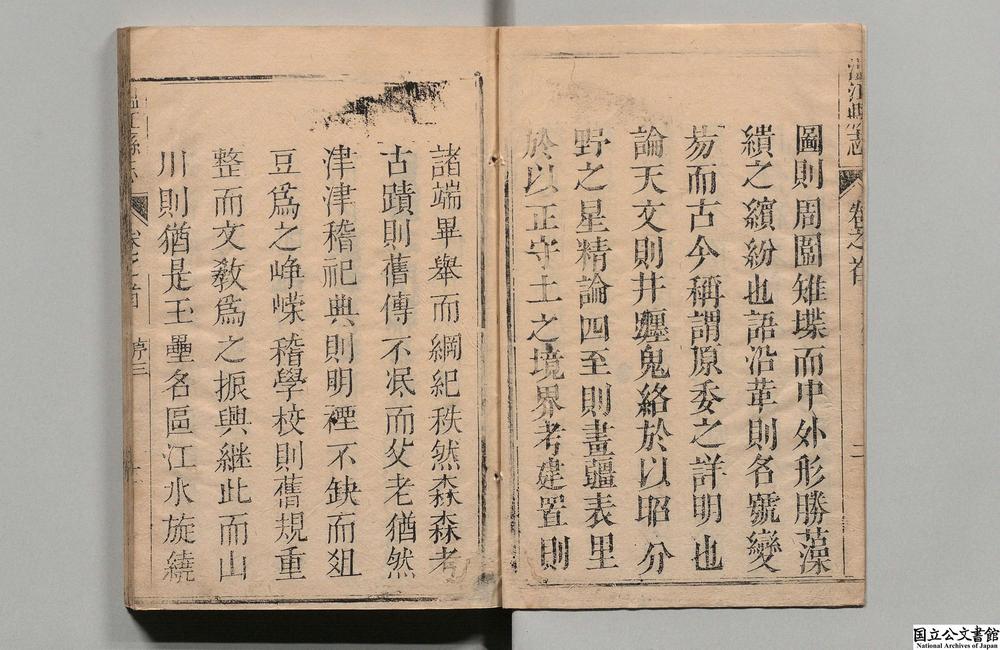 溫江縣志 卷之首 二
圖則周圍雉堞而中外形勝藻
繢之繽紛也語沿革則名號變
易而古今稱謂原委之詳明也
論天文則井躔鬼絡於以昭分
野之星精論四至則畫疆表里
於以正守土之境界考建置則
諸端畢舉而綱紀秩然森森考
古蹟則舊傳不泯而父老猶然
津津稽祀典則明禋不缺而俎
豆為之崢嶸稽學校則舊規重
整而文教為之振興繼此而山
川則猶是玉壘名區江水旋繞
卷之首
国立公文書館
National Archives of Japan